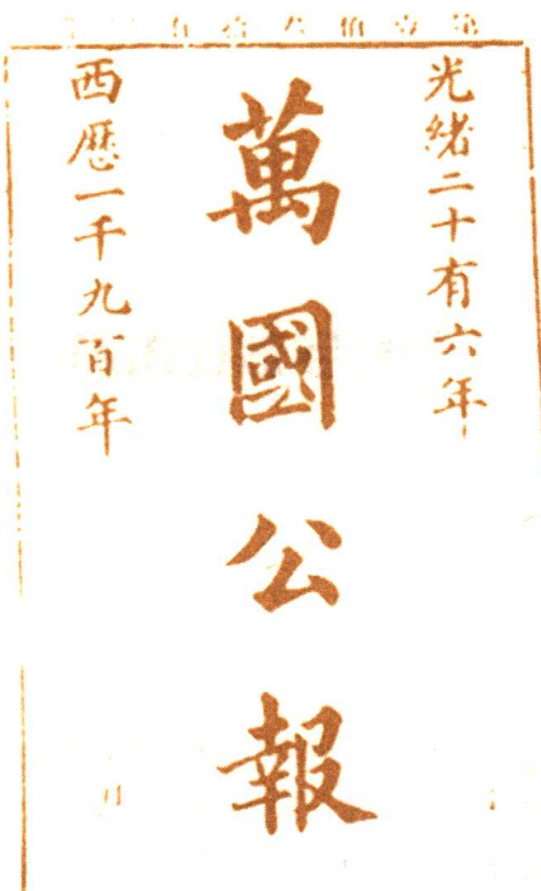 光緒二十有六年
萬國公報
西歷一千九百年
月